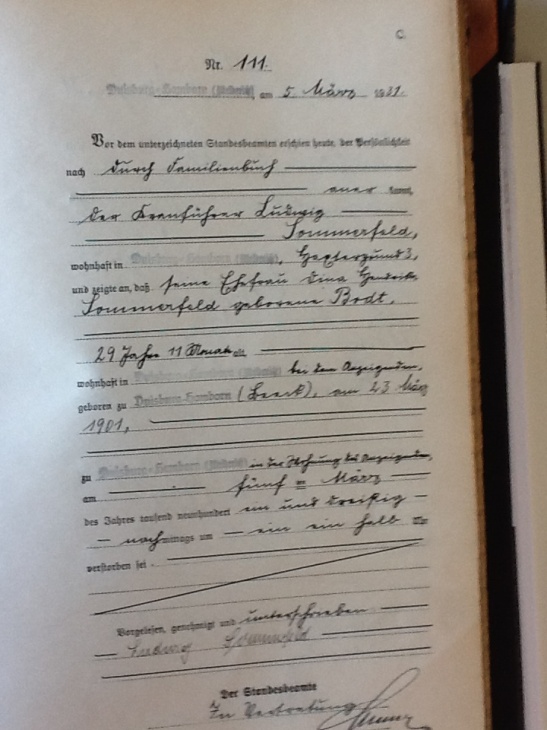 C.
Nr. 111.
Duisburg-Hamborn am 5. März 1931.
Vor dem unterzeichneten Standesbeamten erschien heute, der Persönlichkeit
nach durch Familienbuch
aner kannt,
der Kranführer Ludwig
Sommerfeld,
wohnhaft in Duisburg-Hamborn
und zeigte an, daß seine Ehefrau Dina
Sommerfeld geborene Bodt,
29 Jahre 11 Monate alt
wohnhaft in Duisburg-Hamborn bei dem Anzeigenden,
geboren zu Duisburg-Hamborn (Beeck), am 23 März
1901,
zu Duisburg-Hamborn in der Wohnung des Anzeigenden,
am fünften März
des Jahres tausend neunhundert ein und dreißig
nachmittags um ein ein halb Uhr
verstorben sei.
Vorgelesen, genehmigt und unterschrieben
Ludwig Sommerfeld
Der Standesbeamte
In Vertretung